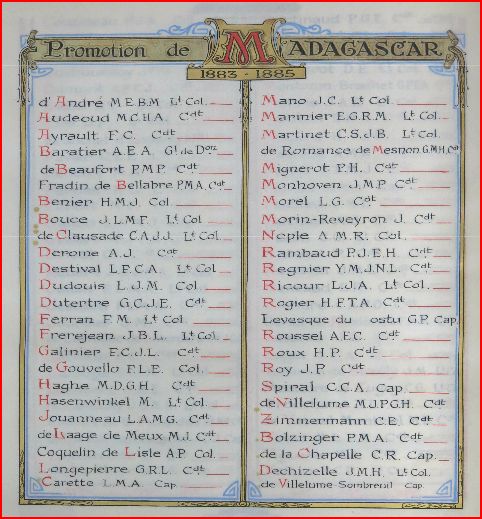 Promotion de MADAGASCAR
1883 - 1885
d'André M.E.B.M. Lt Col.
Audeoud M.C.H.A. Cdt
Ayrault F.C. Cdt
Baratier A.E.A. Gl de Don
de Beaufort P.M.P. Cdt
Fradin de Bellabre P.M.A. Cdt
Benier H.M.J. Col.
Bouce J.L.M.F. Lt Col.
de Clausade C.A.J.J. Lt Col.
Derome A.J. Cdt
Destival L.F.C.A. Lt Col.
Dudouis L.J.M. Col.
Dutertre G.C.J.E. Cdt
Ferran F.M. Lt Col.
Frerejean J.B.L. Lt Col.
Galinier F.C.J.L. Cdt
de Gouvello P.L.E. Col.
Haghe M.D.G.H. Cdt
Hasenwinkel M. Lt Col.
Jouanneau L.A.M.G. Cdt
de Laage de Meux M.J. Cdt
Coquelin de Lisle A.P. Col.
Longepierre G.R.L. Cdt
Carette L.M.A. Cap.
Mano J.C. Lt Col.
Marinier E.G.R.M. Lt Col.
Martinet C.S.J.B. Lt Col.
de Romance de Mesnon G.M.H. Col
Mignerot P.H. Cdt
Monhoven J.M.P. Cdt
Morel L.G. Cdt
Morin-Reveyron J. Cdt
Neple A.M.R. Col.
Rambaud P.J.E.H. Cdt
Regnier Y.M.J.N.L. Cdt
Ricour L.J.A. Lt Col.
Rogier H.F.T.A. Cdt
Levesque du ostu G.P. Cap.
Roussel A.E.C. Cdt
Roux H.P. Cdt
Roy J.P. Cdt
Spiral C.C.A. Cap.
de Villelume M.J.P.G.H. Cdt
Zimmermann C.E. Cdt
Bolzinger P.M.A. Cdt
de la Chapelle C.R. Cap.
Dechizelle J.M.H. Lt Col.
de Villelume-Sombreuil Cap.